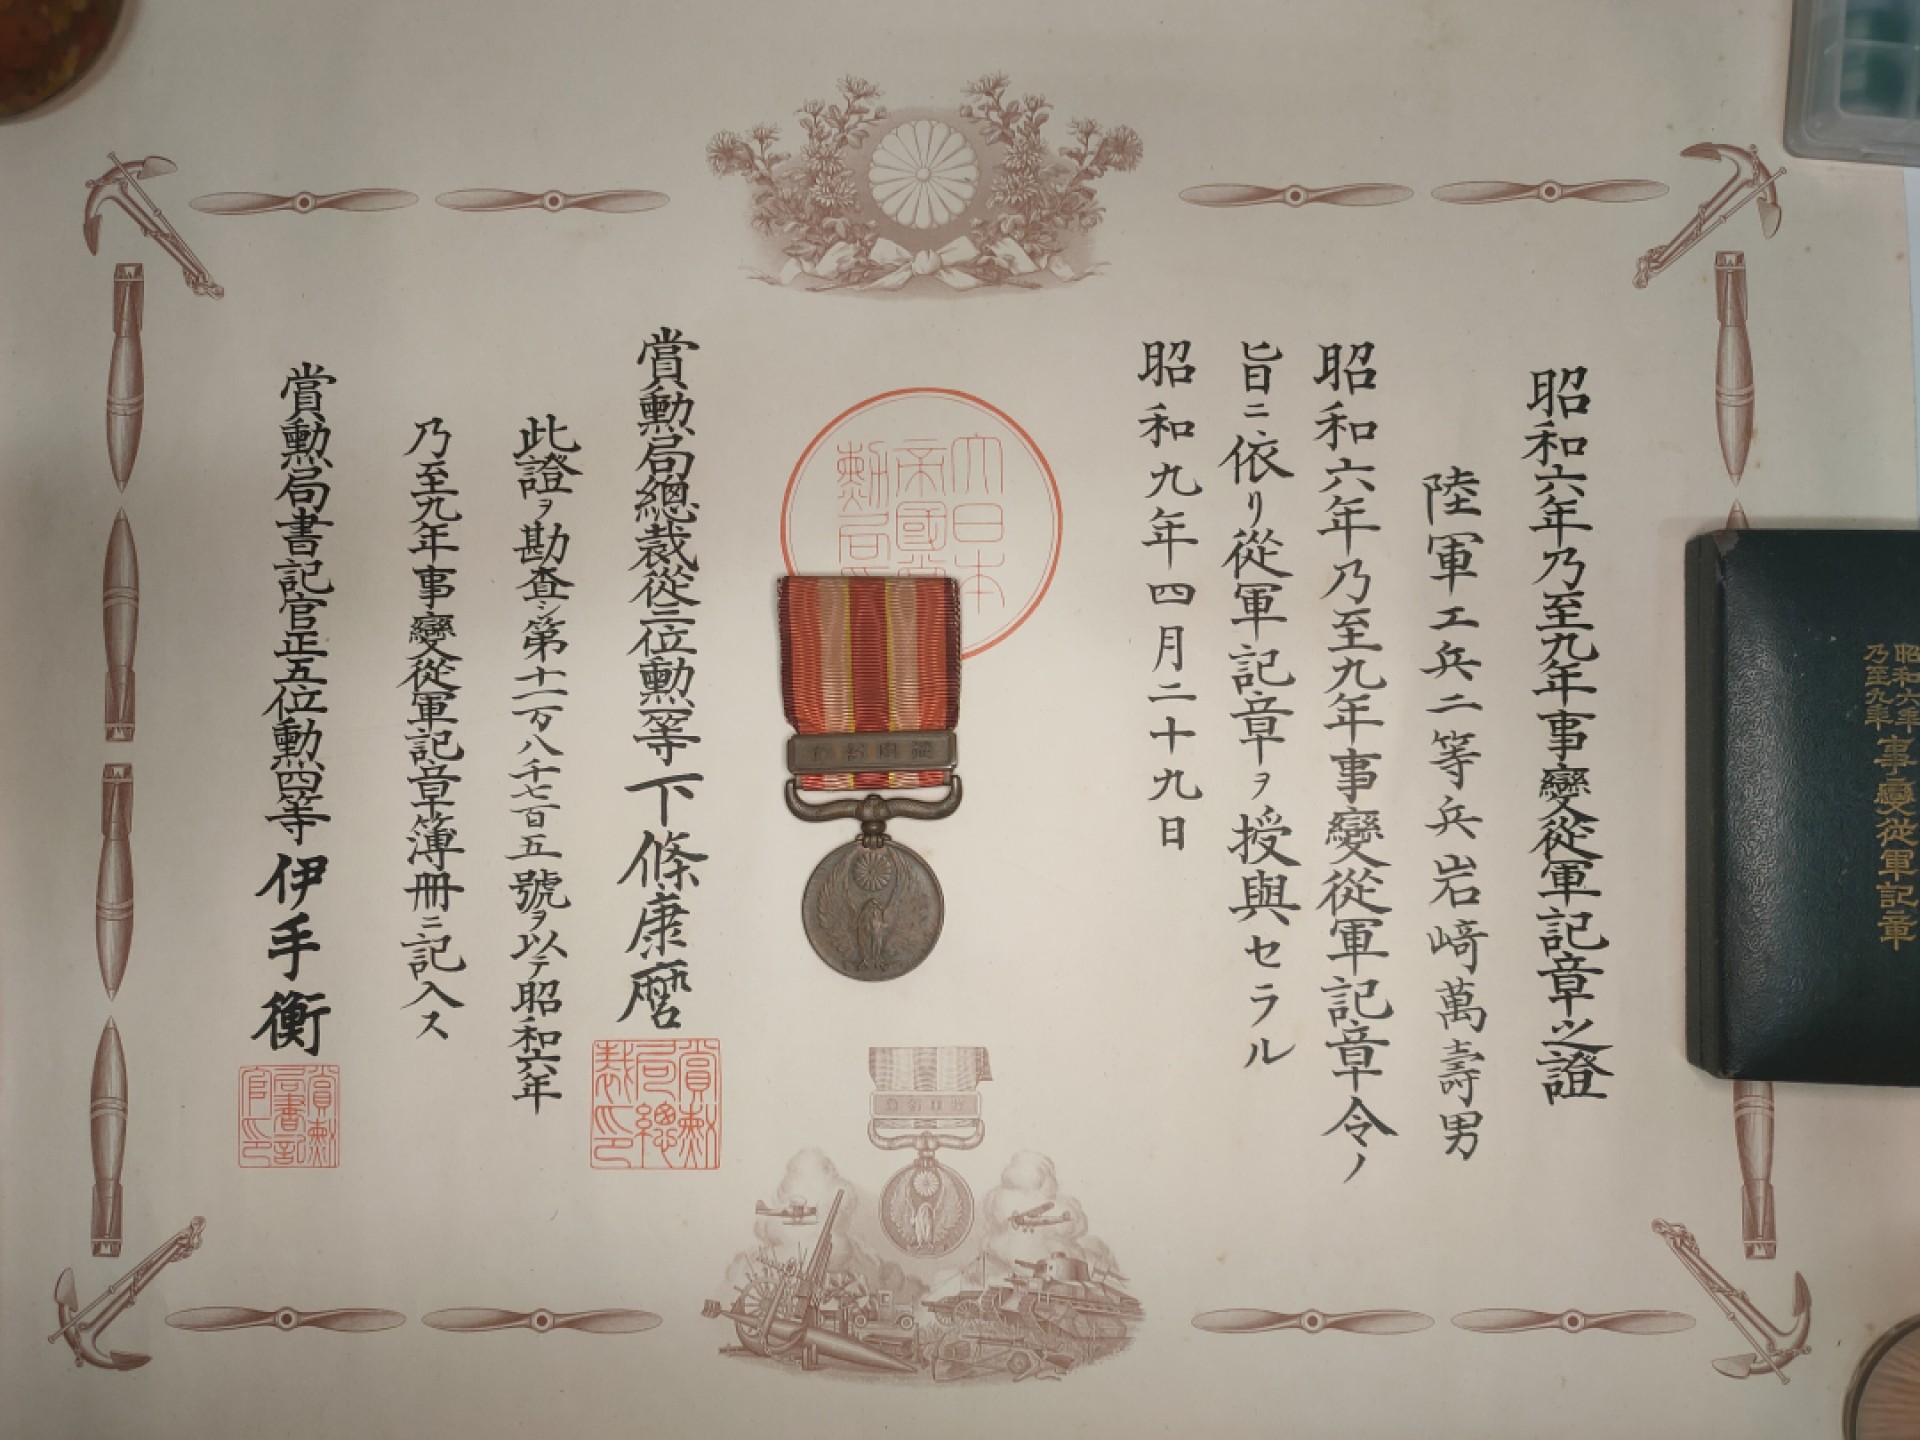 昭和六年
乃至九年
事變從軍記章
昭和六年乃至九年事變從軍記章之證
陸軍工兵二等兵岩﨑萬壽男
昭和六年乃至九年事變從軍記章令ノ
旨ニ依リ從軍記章ヲ授與セラル
昭和九年四月二十九日
大日本
帝國賞
勳局印
賞勳局總裁從三位勳一等下條康麿
賞勳
局總
裁印
此證ヲ勘査シ第十一万八千七百五號ヲ以テ昭和六年
乃至九年事變從軍記章簿冊ニ記入ス
賞勳局書記官正五位勳四等伊手衡
賞勳
局書記
官印